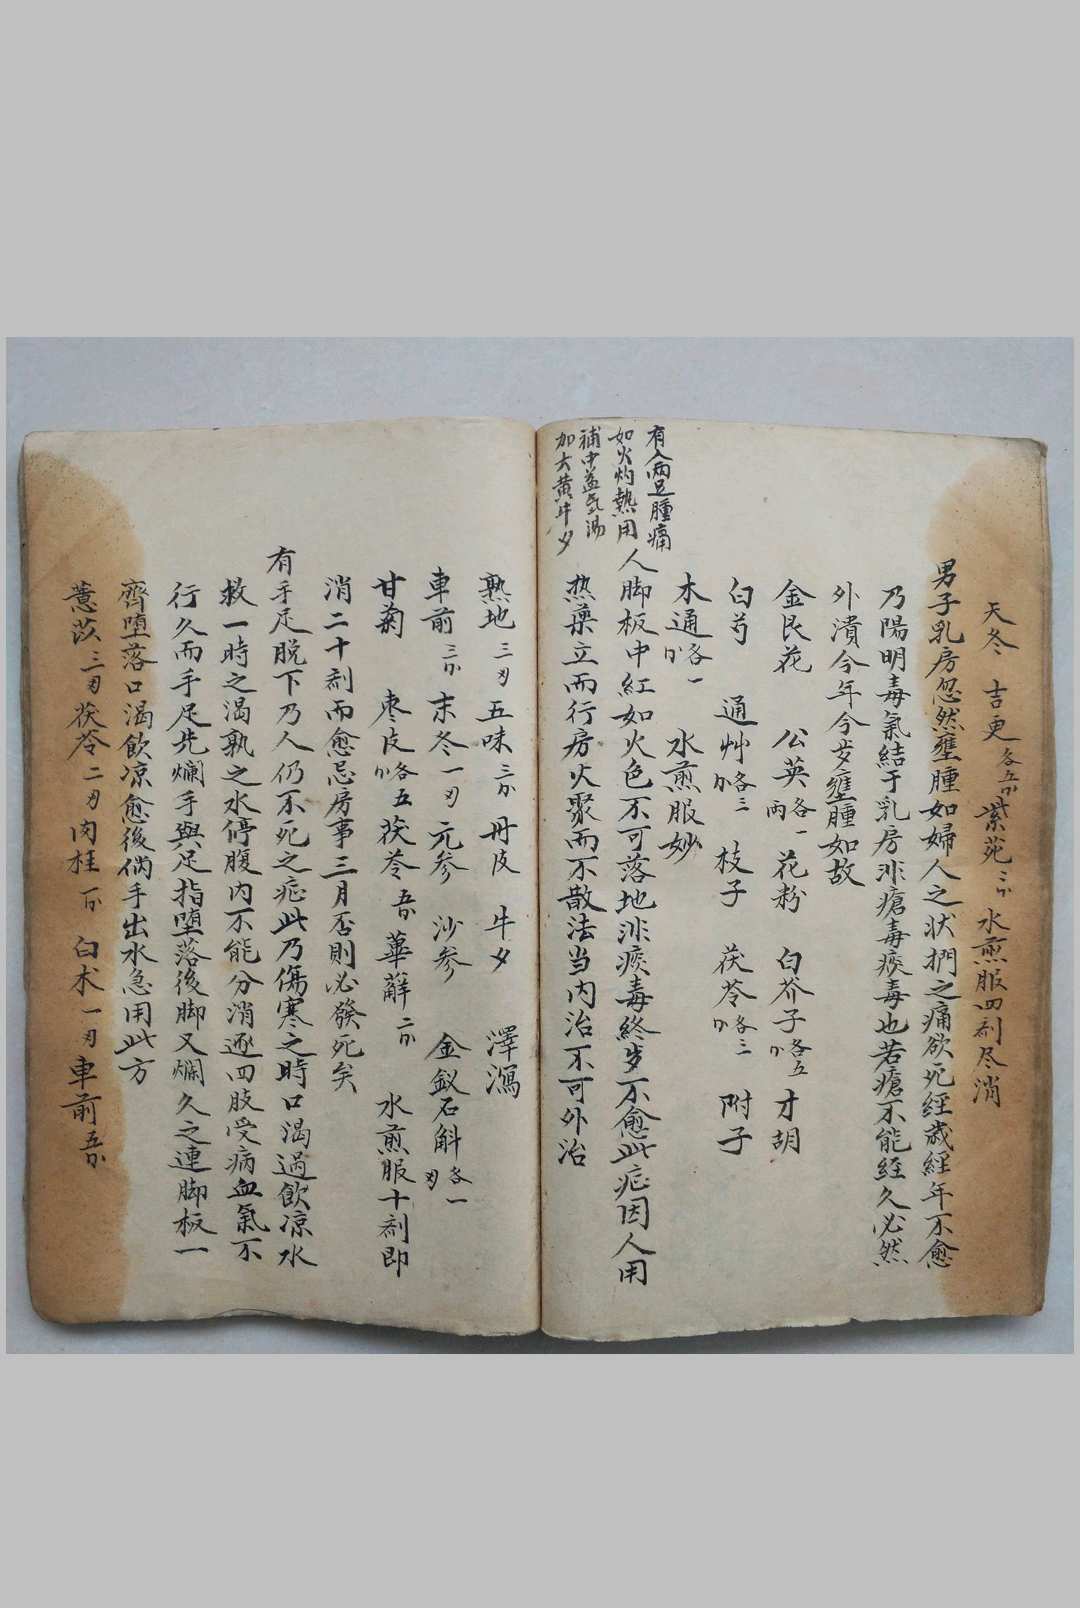 天冬 吉更各五分 紫苑三分 水煎服四剤尽消
男子乳房忽然壅腫如婦人之状捫之痛欲死経歳経年不愈
乃陽明毒氣結于乳房非瘡毒痰毒也若瘡不能経久必然
外潰今年今岁壅腫如故
金艮花 公英各一両 花粉 白芥子各五分 才胡
白芍 通艸各三分 枝子 茯苓各三分 附子
木通各一分 水煎服妙
有人両足腫痛
如火灼熱用
補中益気湯
加大黄牛夕
人脚板中紅如火色不可落地非痰毒終岁不愈此症因人用
热藥立而行房火聚而不散法当内治不可外治
熟地三刃 五味三分 丹皮 牛夕 澤瀉
車前三分 末冬一刃 元参 沙参 金釵石斛各一刃
甘菊 枣皮各五分 茯苓五分 萆薢二分 水煎服十剤即
消二十剤而愈忌房事三月否則必発死矣
有手足脱下乃人仍不死之症此乃傷寒之時口渴過飲凉水
救一時之渴孰之水停腹内不能分消遂四肢受病血氣不
行久而手足先爛手與足指堕落後脚又爛久之連脚板一
齊堕落口渴飲凉愈後倘手出水急用此方
薏苡三刃 茯苓二刃 肉桂一分 白术一刃 車前五分